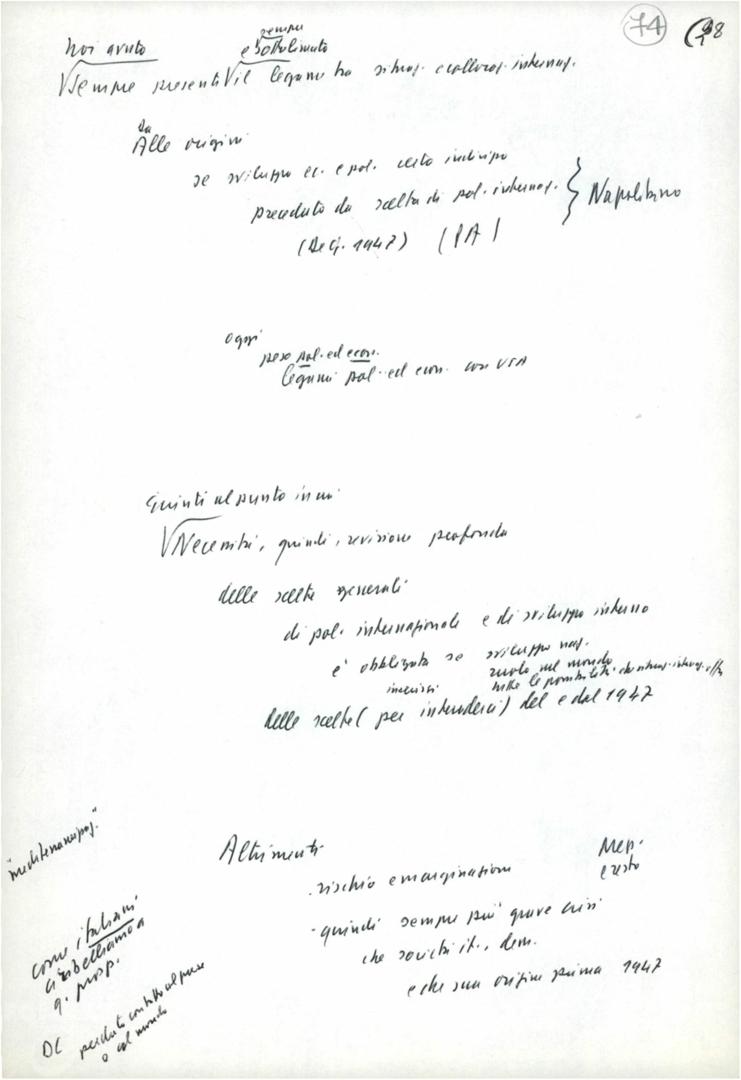 74 98
sempre
Noi avuto e sottolineato
Sempre presenti il legame tra situaz. e collocaz. internaz.
Da
Alle origini
se sviluppo ec. e pol. certo indirizzo
preceduto da scelta di pol. internaz.
(De G. 1947) (PA)
Napolitano
oggi
peso pol. ed econ.
legami pol. ed econ. con USA
Giunti al punto in cui
Necessità, quindi, revisione profonda
delle scelte generali
di pol. internazionale e di sviluppo interno
è obbligata se sviluppo naz.
ruolo nel mondo
tutte le possibilità situaz. internaz.
delle scelte (per intenderci) del e dal 1947
Altrimenti
- rischio emarginazione
- quindi sempre più grave crisi
che società it., dem.
e che sua origine prima 1947
"mediterraneizzaz."
come italiani
ci ribelliamo a
q. prosp.
DC perduto contatto col paese
o col mondo